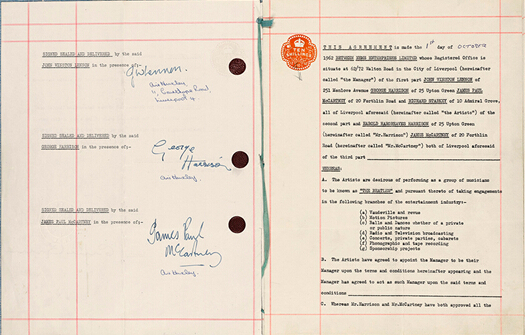 SIGNED SEALED AND DELIVERED by the said
JOHN WINSTON LENNON in the presence of:-
JWLennon.
Liverpool 4
SIGNED SEALED AND DELIVERED by the said
GEORGE HARRISON in the presence of:-
George
Harrison
SIGNED SEALED AND DELIVERED by the said
JAMES PAUL McCARTNEY in the presence of:-
James Paul
McCartney
TEN SHILLINGS
THIS AGREEMENT is made the 1st day of October
1962 BETWEEN NEMS ENTERPRISES LIMITED whose Registered Office is
situate at 12/14 Walton Road in the City of Liverpool (hereinafter
called "the Manager") of the first part JOHN WINSTON LENNON of
251 Menlove Avenue GEORGE HARRISON of 25 Upton Green JAMES PAUL
McCARTNEY of 20 Forthlin Road and RICHARD STARKEY of 10 Admiral Grove,
all of Liverpool aforesaid (hereinafter called "the Artists") of the
second part and HAROLD HARGREAVES HARRISON of 25 Upton Green
(hereinafter called "Mr.Harrison") JAMES McCARTNEY of 20 Forthlin
Road (hereinafter called "Mr.McCartney") both of Liverpool aforesaid
of the third part
WHEREAS:
A. The Artists are desirous of performing as a group of musicians
to be known as "THE BEATLES" and pursuant thereto of taking engagements
in the following branches of the entertainment industry:-
(a) Vaudeville and revue
(b) Motion Pictures
(c) Balls and Dances whether of a private
or public nature
(d) Radio and Television broadcasting
(e) Concerts, private parties, cabarets
(f) Phonographic and tape recording
(g) Sponsorship projects
B. The Artists have agreed to appoint the Manager to be their
Manager upon the terms and conditions hereinafter appearing and the
Manager has agreed to act as such Manager upon the said terms and
conditions
C. Whereas Mr.Harrison and Mr.McCartney have both approved all the